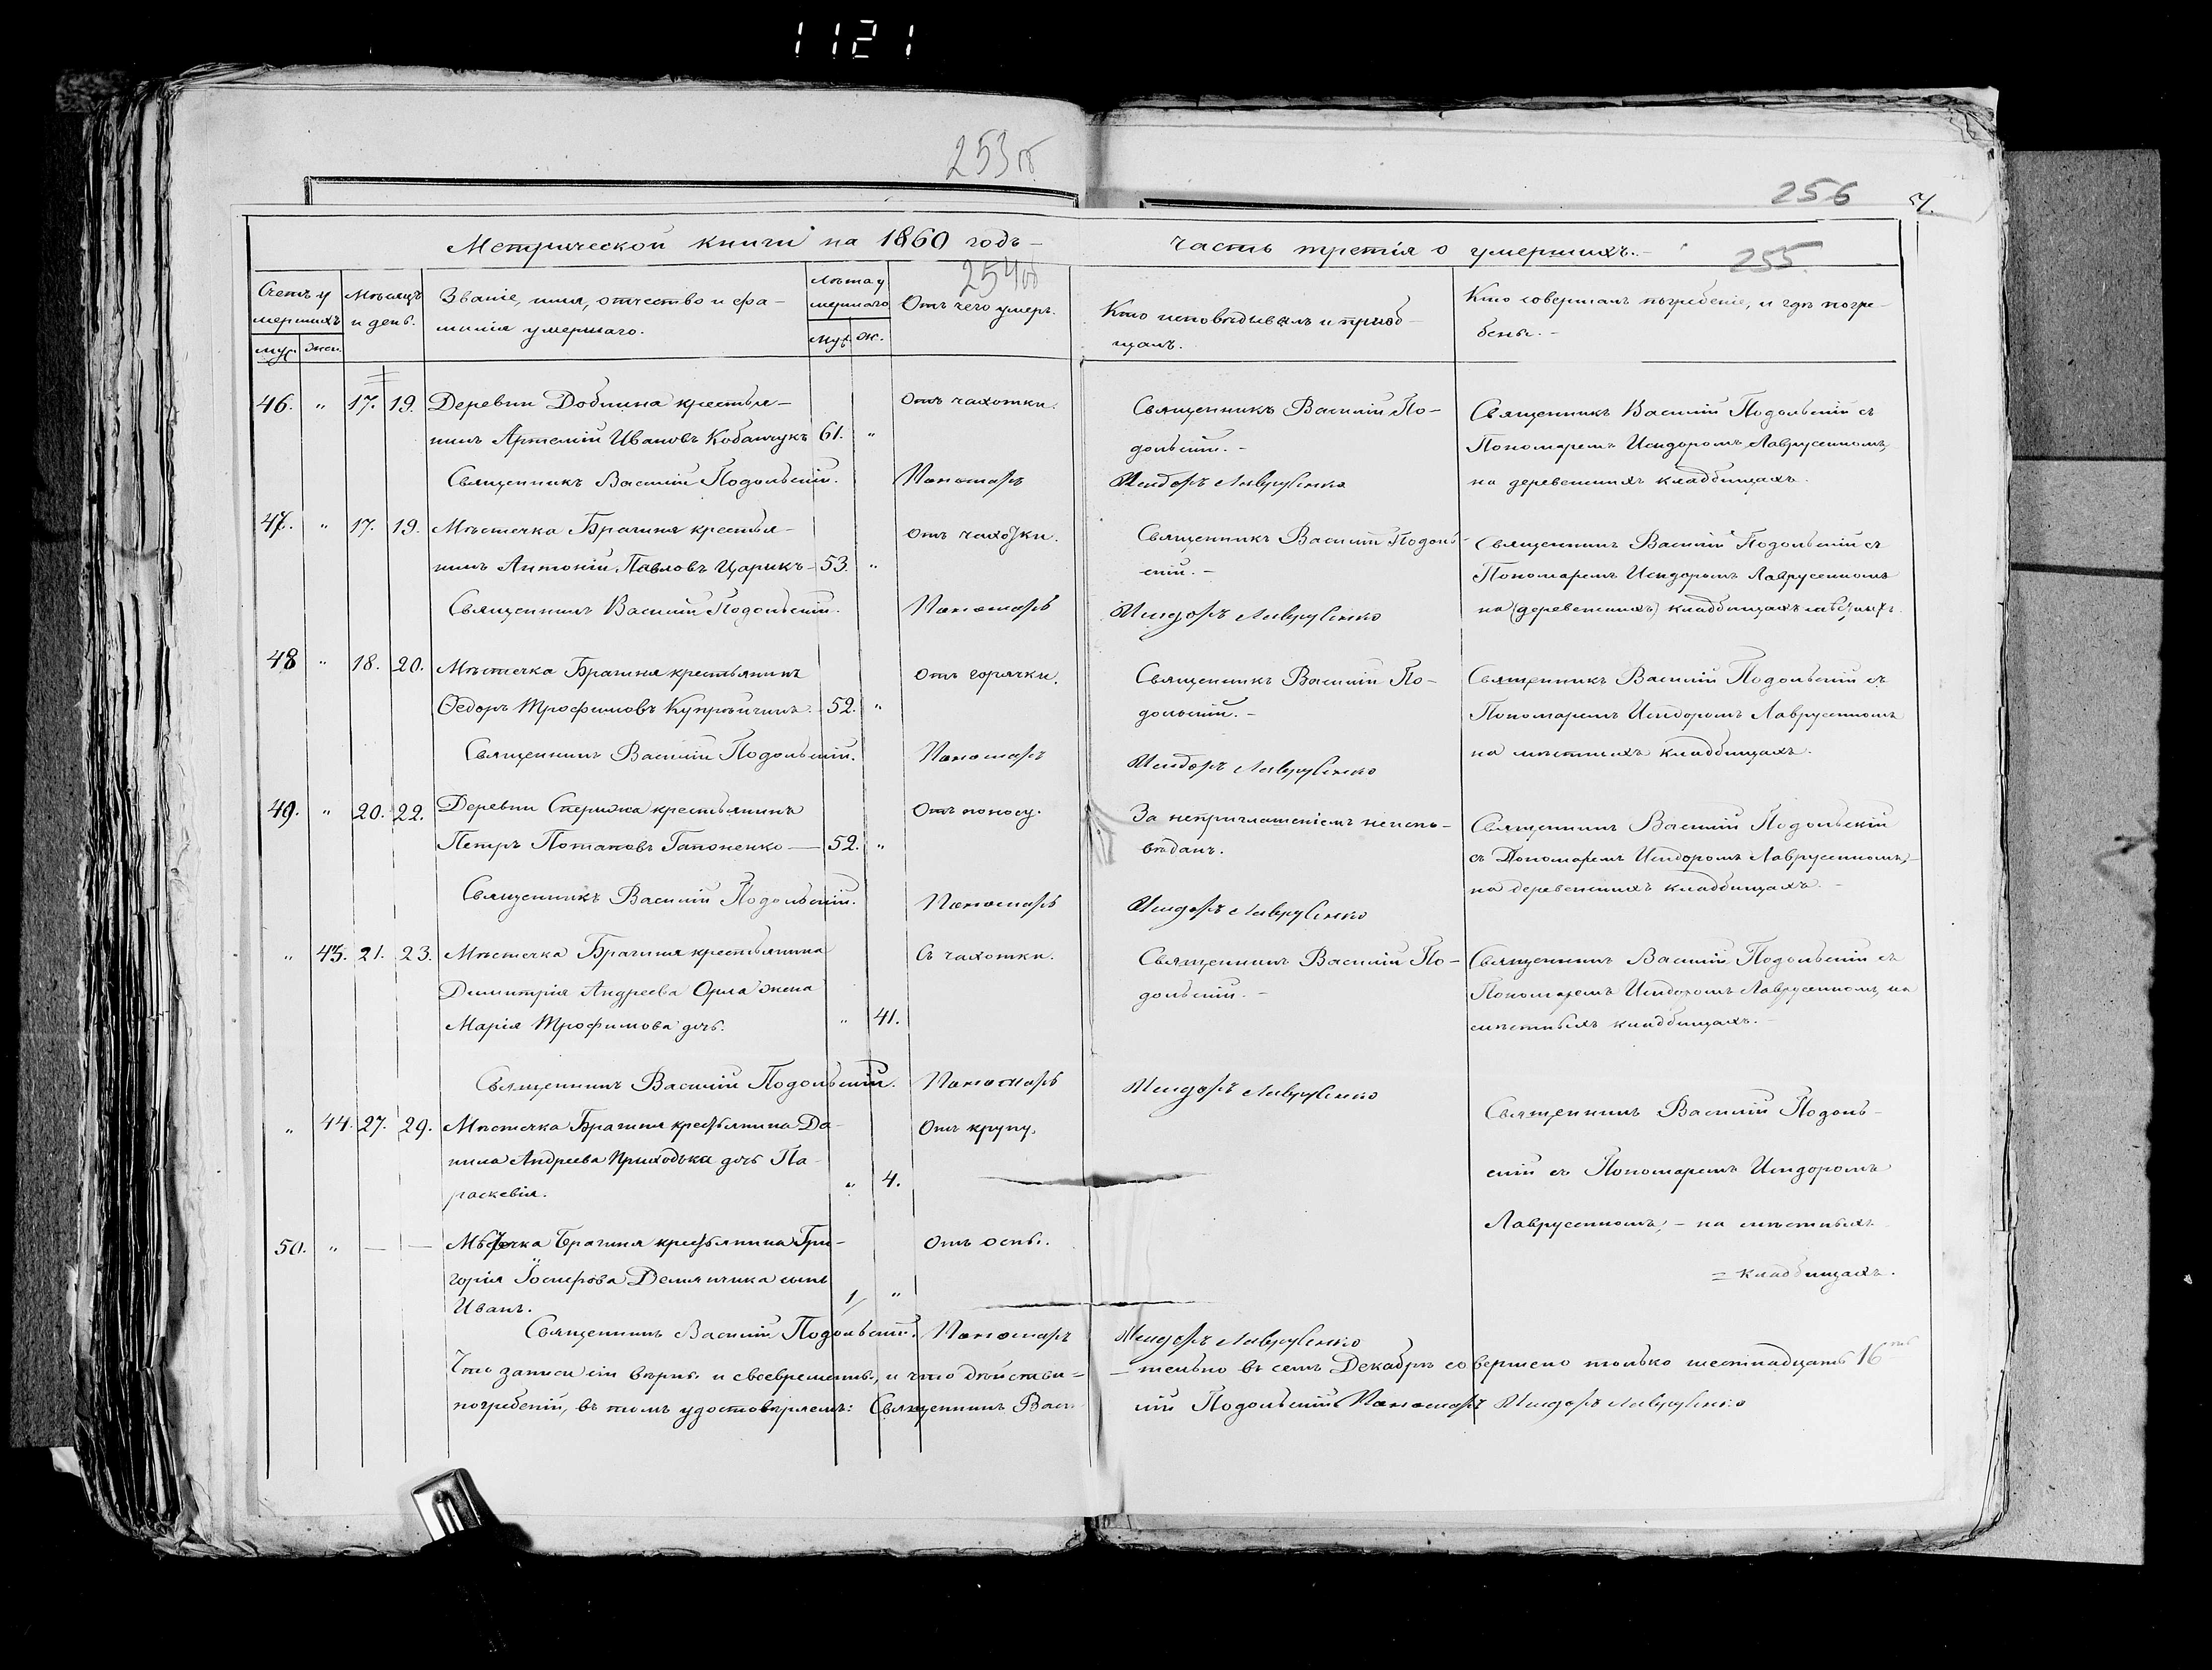 1121
253 об
256
7.
Метрической книги на 1860 годъ –
часть третія о умершихъ. –
254 об
255
Счетъ у
мершихъ
муж. жен.
Мѣсяцъ
и день.
Званіе, имя, отчество и фа-
милія умершаго.
Лѣта у
мершаго
муж. ж.
Отъ чего умеръ.
Кто исповѣдывалъ и пріоб-
щалъ.
Кто совершалъ погребеніе, и гдѣ погре-
бены. –
46. " 17. 19. Деревни Доблина крестья- Отъ чахотки. Священникъ Василій По- Священникъ Василій Подольскій съ
нинъ Артемій Ивановъ Кобанчукъ 61. " дольскій. – Пономаремъ Исидоромъ Лаврусенкомъ,
Священникъ Василій Подольскій. Пономарь Исидоръ Лаврусенко на деревенскихъ кладбищахъ.
47. " 17. 19. Мѣстечка Брагиня крестья- Отъ чахотки. Священникъ Василій Подоль- Священникъ Василій Подольскій съ
нинъ Антоній Павловъ Царикъ – 53. " скій. – Пономаремъ Исидоромъ Лаврусенкомъ
Священникъ Василій Подольскій. Пономарь Исидоръ Лаврусенко на (деревенскихъ) кладбищахъ
48 " 18. 20. Мѣстечка Брагиня крестьянинъ Отъ горячки. Священникъ Василій По- Священникъ Василій Подольскій съ
Ѳедоръ Трофимовъ – 52. " дольскій. – Пономаремъ Исидоромъ Лаврусенкомъ
Священникъ Василій Подольскій. Пономарь Исидоръ Лаврусенко на мѣстныхъ кладбищахъ.
49. " 20. 22. Деревни Стерижа крестьянинъ Отъ поносу. За неприглашеніемъ неиспо- Священникъ Василій Подольскій
Петръ Потаповъ Гапоненко — 52. " вѣданъ. съ Пономаремъ Исидоромъ Лаврусенкомъ, –
Священникъ Василій Подольскій. Пономарь Исидоръ Лаврусенко на деревенскихъ кладбищахъ. –
" 43. 21. 23. Мѣстечка Брагиня крестьянина Съ чахотки. Священникъ Василій По- Священникъ Василій Подольскій съ
Димитрія Андреева Орла жена дольскій. – Пономаремъ Исидоромъ Лаврусенкомъ, на
Марія Трофимова дочь. " 41. мѣстныхъ кладбищахъ. –
Священникъ Василій Подольскій. Пономарь Исидоръ Лаврусенко
" 44. 27. 29. Мѣстечка Брагиня крестьянина Да- Отъ крупу. Священникъ Василій Подоль-
нила Андреева Приходька дочь Па- " 4. скій съ Пономаремъ Исидоромъ
раскевія. Лаврусенкомъ, – на мѣстныхъ
50. " — — Мѣстечка Брагиня крестьянина Гри- Отъ оспы.
горія Іосифова Демянчика сынъ = кладбищахъ.
Иванъ. 1/ "
Священникъ Василій Подольскій. Пономарь Исидоръ Лаврусенко
Что записи сіи вѣрны и своевременны, и что дѣйстви- – тельно въ семъ Декабрѣ совершено только шестнадцать 16ть
погребеній, въ томъ удостовѣряемъ: Священникъ Васи- лій Подольскій Пономарь Исидоръ Лаврусенко